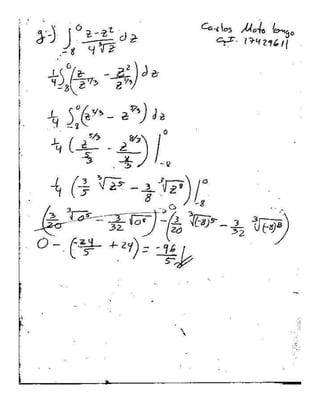 Carlos Mata Longo
C.I. 17429611
g.-) ∫_{-8}^{0} z-z²/4∛z dz
1/4 ∫_{-8}^{0} (z/z^{1/3} - z²/z^{1/3}) dz
1/4 ∫_{-8}^{0} (z^{2/3} - z^{5/3}) dz
1/4 (z^{5/3}/(5/3) - z^{8/3}/(8/3)) |_{-8}^{0}
1/4 (3/5 ∛z⁵ - 3/8 ∛z⁸) |_{-8}^{0}
(3/20 ∛0⁵ - 3/32 ∛0⁸)⁰ - (3/20 ∛(-8)⁵ - 3/32 ∛(-8)⁸)
0 - (-24/5 + 24) = -96/5